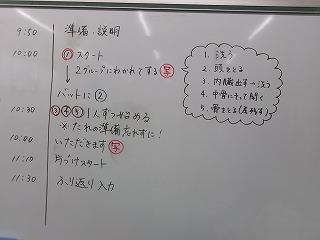 9:50 準備・説明
10:00 ①スタート
2グループにわかれてする 写
↓
バットに②
10:30 ③④⑤1人ずつ始める
※たれの準備忘れずに!
10:00 いただきます 写
11:10 片づけスタート
11:30 ふり返り 入力
1. 洗う
2. 頭をとる
3. 内臓出す→洗う
4. 中骨にそって開く
5. 骨をとる(尾残す)